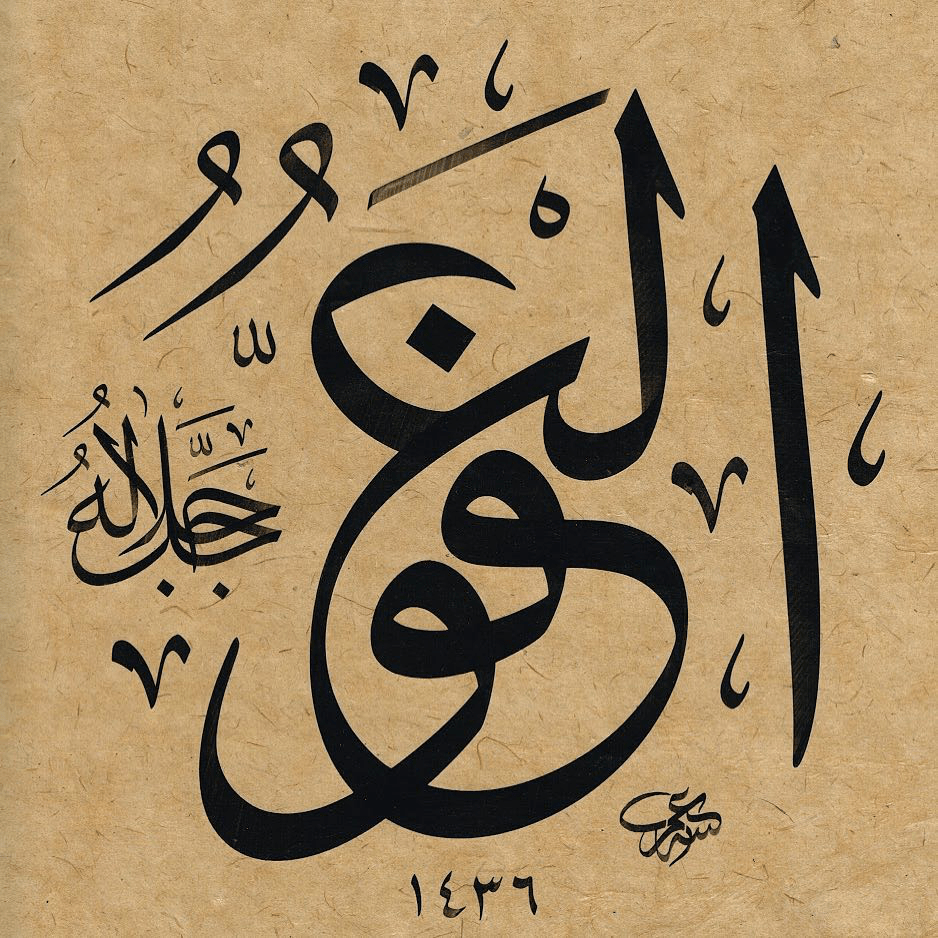 العَفُوُّ
جَلَّ جَلَالُهُ
١٤٣٦